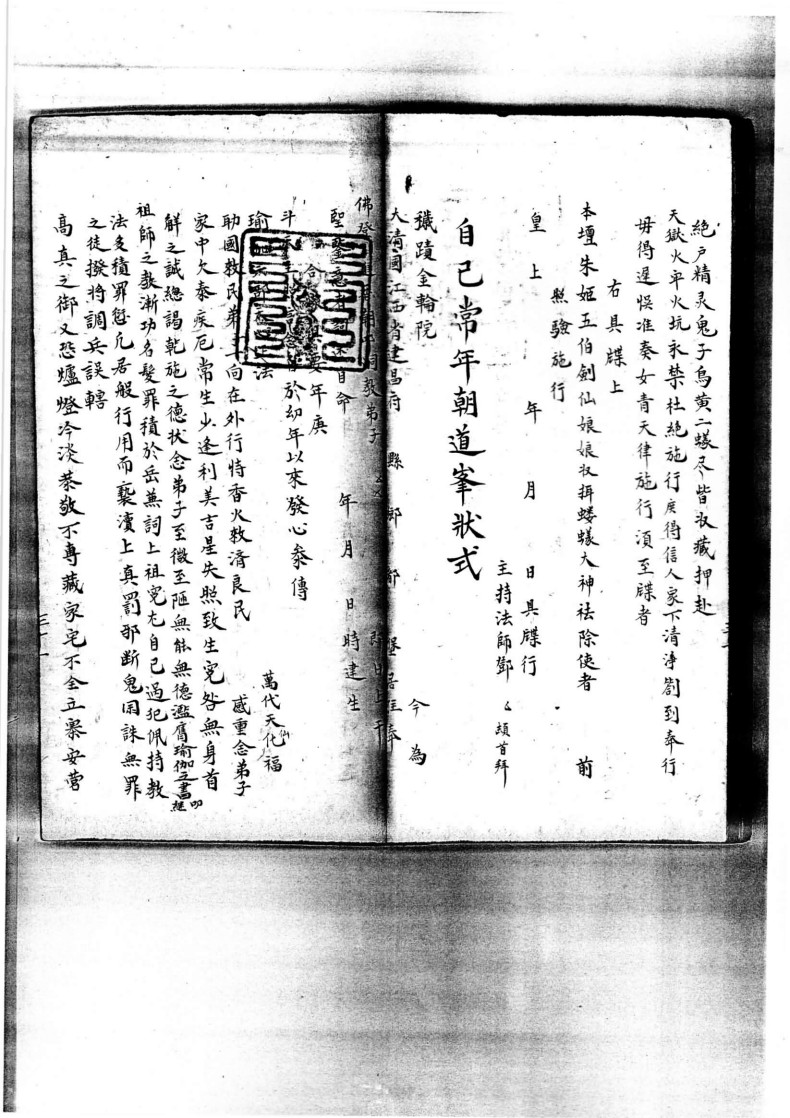 絶户精灵鬼子鳥黄二蟻尽皆收藏押赴
天獄火牢火坑永禁杜絶施行庶得信人家下清净劄到奉行
毋得遲悮准奏女青天律施行湏至牒者
右具牒上
本壇朱姬五伯劍仙娘娘收捐蝼蟻大神祛除使者 前
照驗施行
皇上 年 月 日具牒行
主持法師鄧 頓首拜
自己常年朝道峯狀式
穢蹟金輪院 今為
大清國江西省建昌府 縣 鄉 都 堡居住奉
佛 弟子 即日上干
聖鑒意者 自命 年 月 日時建生
合 年庚
斗 於幼年以來發心叅傳
瑜 法 萬代天化福
助國救民弟子向在外行持香火救济良民 感重念弟子
家中欠泰疾厄常生少逢利美吉星失照致生寃咎無身首
觧之誠總謁乾施之德状念弟子至微至陋無能無德濫膺瑜伽之書
祖師之教漸功名髮罪積於岳蕪詞上祖寃尤自己過犯佩持教
法多積罪愆凢居般行用而褻瀆上真罰邪断鬼悮誅無罪
之徒撥将調兵誤轄
髙真之御又恐爐燈冷淡恭敬不專藏家宅不全立寨安营